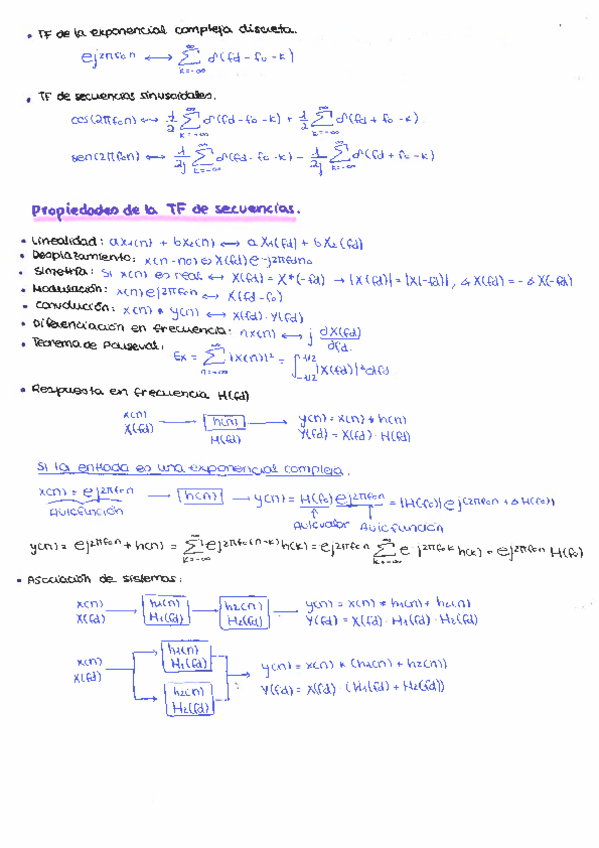 • TF de la exponencial compleja discreta.
e^j2πf₀n ⟷ ∑_{k=-∞}^{∞} δ(fd - f₀ - k)
• TF de secuencias sinusoidales.
cos(2πf₀n) ⟷ 1/2 ∑_{k=-∞}^{∞} δ(fd - f₀ - k) + 1/2 ∑_{k=-∞}^{∞} δ(fd + f₀ - k)
sen(2πf₀n) ⟷ 1/2j ∑_{k=-∞}^{∞} δ(fd - f₀ - k) - 1/2j ∑_{k=-∞}^{∞} δ(fd + f₀ - k)
Propiedades de la TF de secuencias.
• Linealidad: ax₁(n) + bx₂(n) ⟷ aX₁(fd) + bX₂(fd)
• Desplazamiento: x(n-n₀) ⟷ X(fd) e^-j2πfdn₀
• Simetría: Si x(n) es real ⟷ X(fd) = X*(-fd) → |X(fd)| = |X(-fd)|, ∡X(fd) = -∡X(-fd)
• Modulación: x(n) e^j2πf₀n ⟷ X(fd - f₀)
• Convolución: x(n) * y(n) ⟷ X(fd) · Y(fd)
• Diferenciación en frecuencia: nx(n) ⟷ j dX(fd)/dfd
• Teorema de Parseval: Ex = ∑_{n=-∞}^{∞} |x(n)|² = ∫_{-1/2}^{1/2} |X(fd)|² dfd
• Respuesta en frecuencia H(fd)
x(n) → h(n) → y(n) = x(n) * h(n)
X(fd) H(fd) Y(fd) = X(fd) · H(fd)
Si la entrada es una exponencial compleja.
x(n) = e^j2πf₀n → h(n) → y(n) = H(f₀) e^j2πf₀n = |H(f₀)| e^j(2πf₀n + ∡H(f₀))
Autofunción Autovalor Autofunción
y(n) = e^j2πf₀n * h(n) = ∑_{k=-∞}^{∞} e^j2πf₀(n-k) h(k) = e^j2πf₀n ∑_{k=-∞}^{∞} e^-j2πf₀k h(k) = e^j2πf₀n H(f₀)
• Asociación de sistemas:
x(n) → h₁(n) → h₂(n) → y(n) = x(n) * h₁(n) * h₂(n)
X(fd) H₁(fd) H₂(fd) Y(fd) = X(fd) · H₁(fd) · H₂(fd)
h₁(n)
H₁(fd)
x(n) → y(n) = x(n) * (h₁(n) + h₂(n))
X(fd) Y(fd) = X(fd) · (H₁(fd) + H₂(fd))
h₂(n)
H₂(fd)